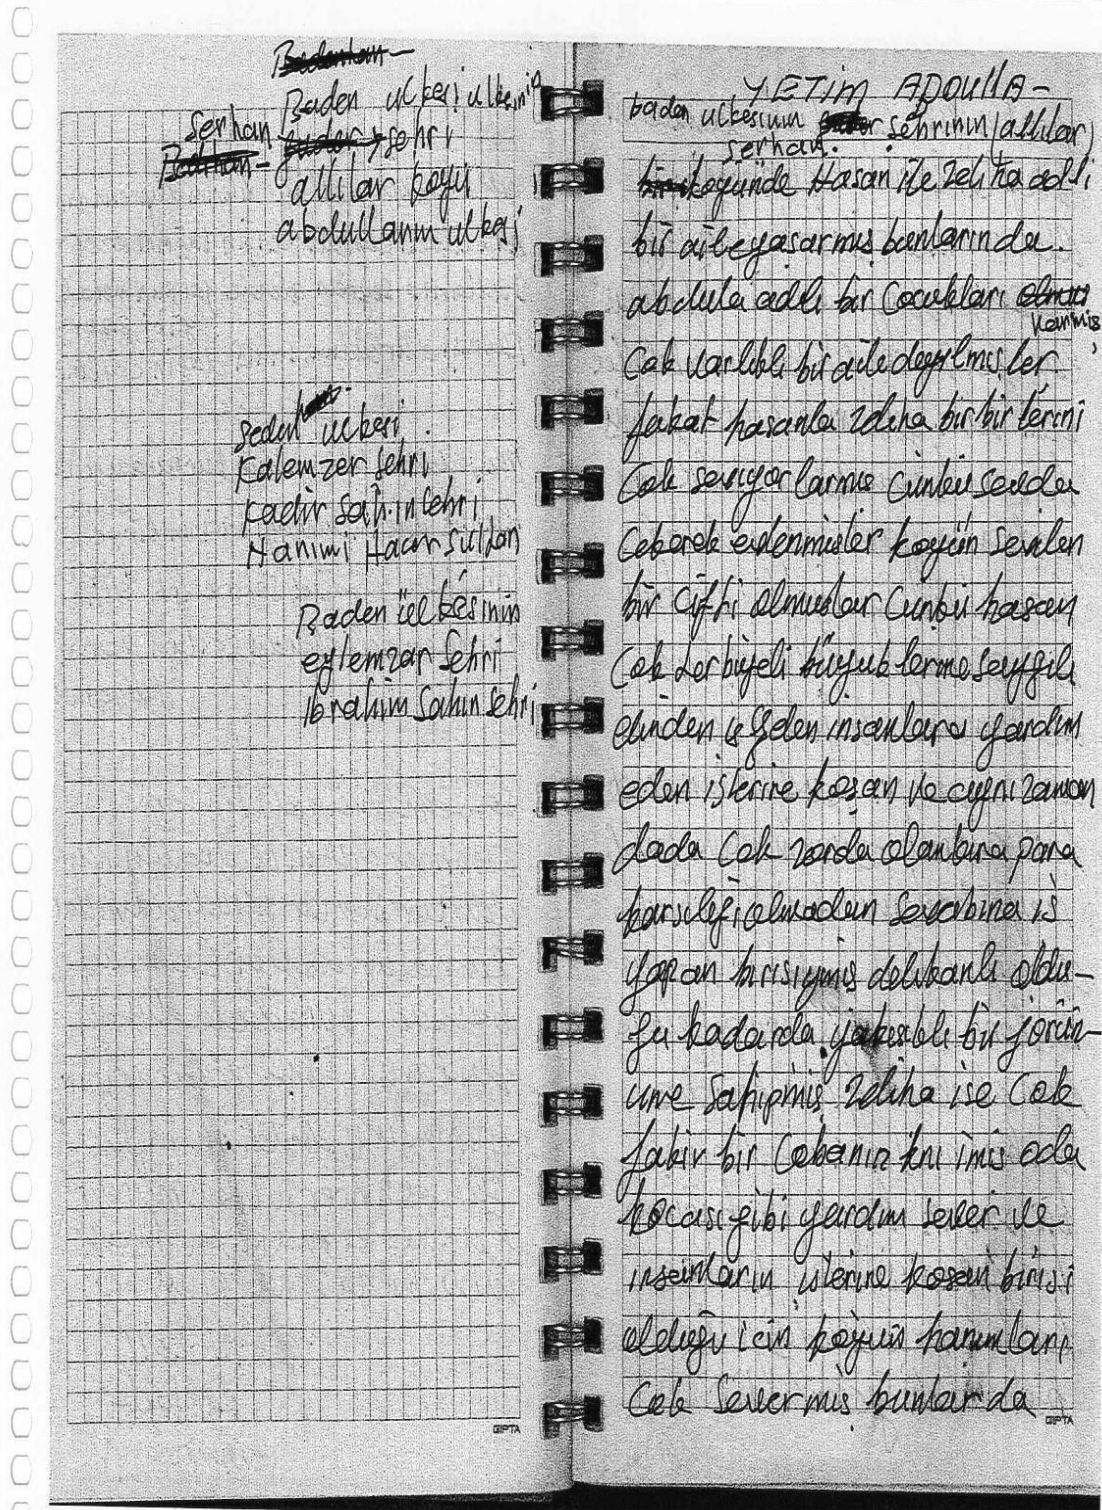 Baden ulkesi ulkenin
serhan şehri
allılar koyu
abdullanın ulkesi
sedal ulkesi
Kalemzer şehri
Kadir şahın şehri
Hanımi Hacer sultan
Baden ülkesinin
eylemzar şehri
İbrahim şahın şehri
GIPTA
YETİM ABDULLA-
baden ulkesinin şehrinin (allılar)
serhan.
koyünde Hasan ile Zeliha adlı
bir aile yaşarmış bunlarında
abdula adlı bir Çocukları varmış
Çok varlıklı bir aile deyilmişler
fakat hasanla Zeliha birbirlerini
Çok seviyorlarmış Cünkü sevda
Cekerek evlenmişler koyün sevilen
bir Cifti olmuşlar Cünkü hasan
Cok terbiyeli büyüklerine saygılı
elinden iş gelen insanlara yardım
eden işlerine koşan ve aynı zaman
dada Cok zorda olanlara para
karşılığı almadan sevabına iş
yapan birisiymiş delikanlı oldu-
ğu kadarda yakışıklı bir görün-
üme Sahipmiş Zeliha ise Cok
fakir bir Cobanın kızı imiş oda
kocası gibi yardım sever ve
insanların işlerine koşan birisi
olduğu icin koyün hanımları
Cok Severmiş bunlar da
GIPTA